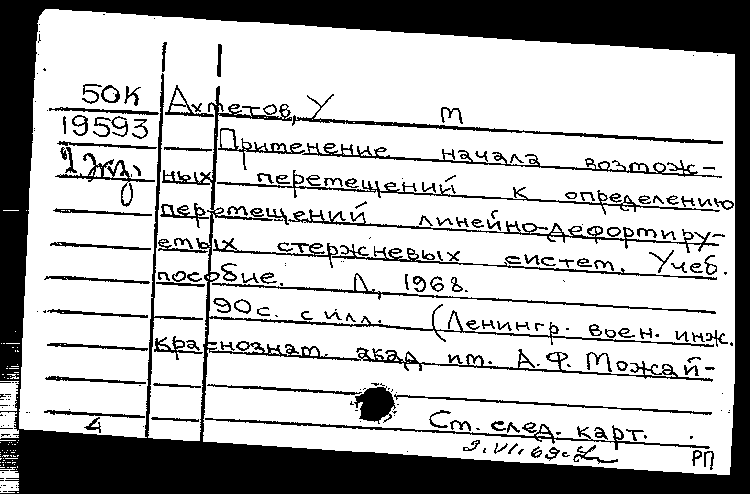 50К Ахметов, У м
19593 Применение начала возмож-
2 экз. ных перемещений к определению
перемещений линейно-деформиру-
емых стержневых систем. Учеб.
пособие. Л., 1968.
90 с. с илл. (Ленингр. воен. инж.
краснознам. акад. им. А.Ф. Можай-
См. след. карт.
4 9.VI.69 РП